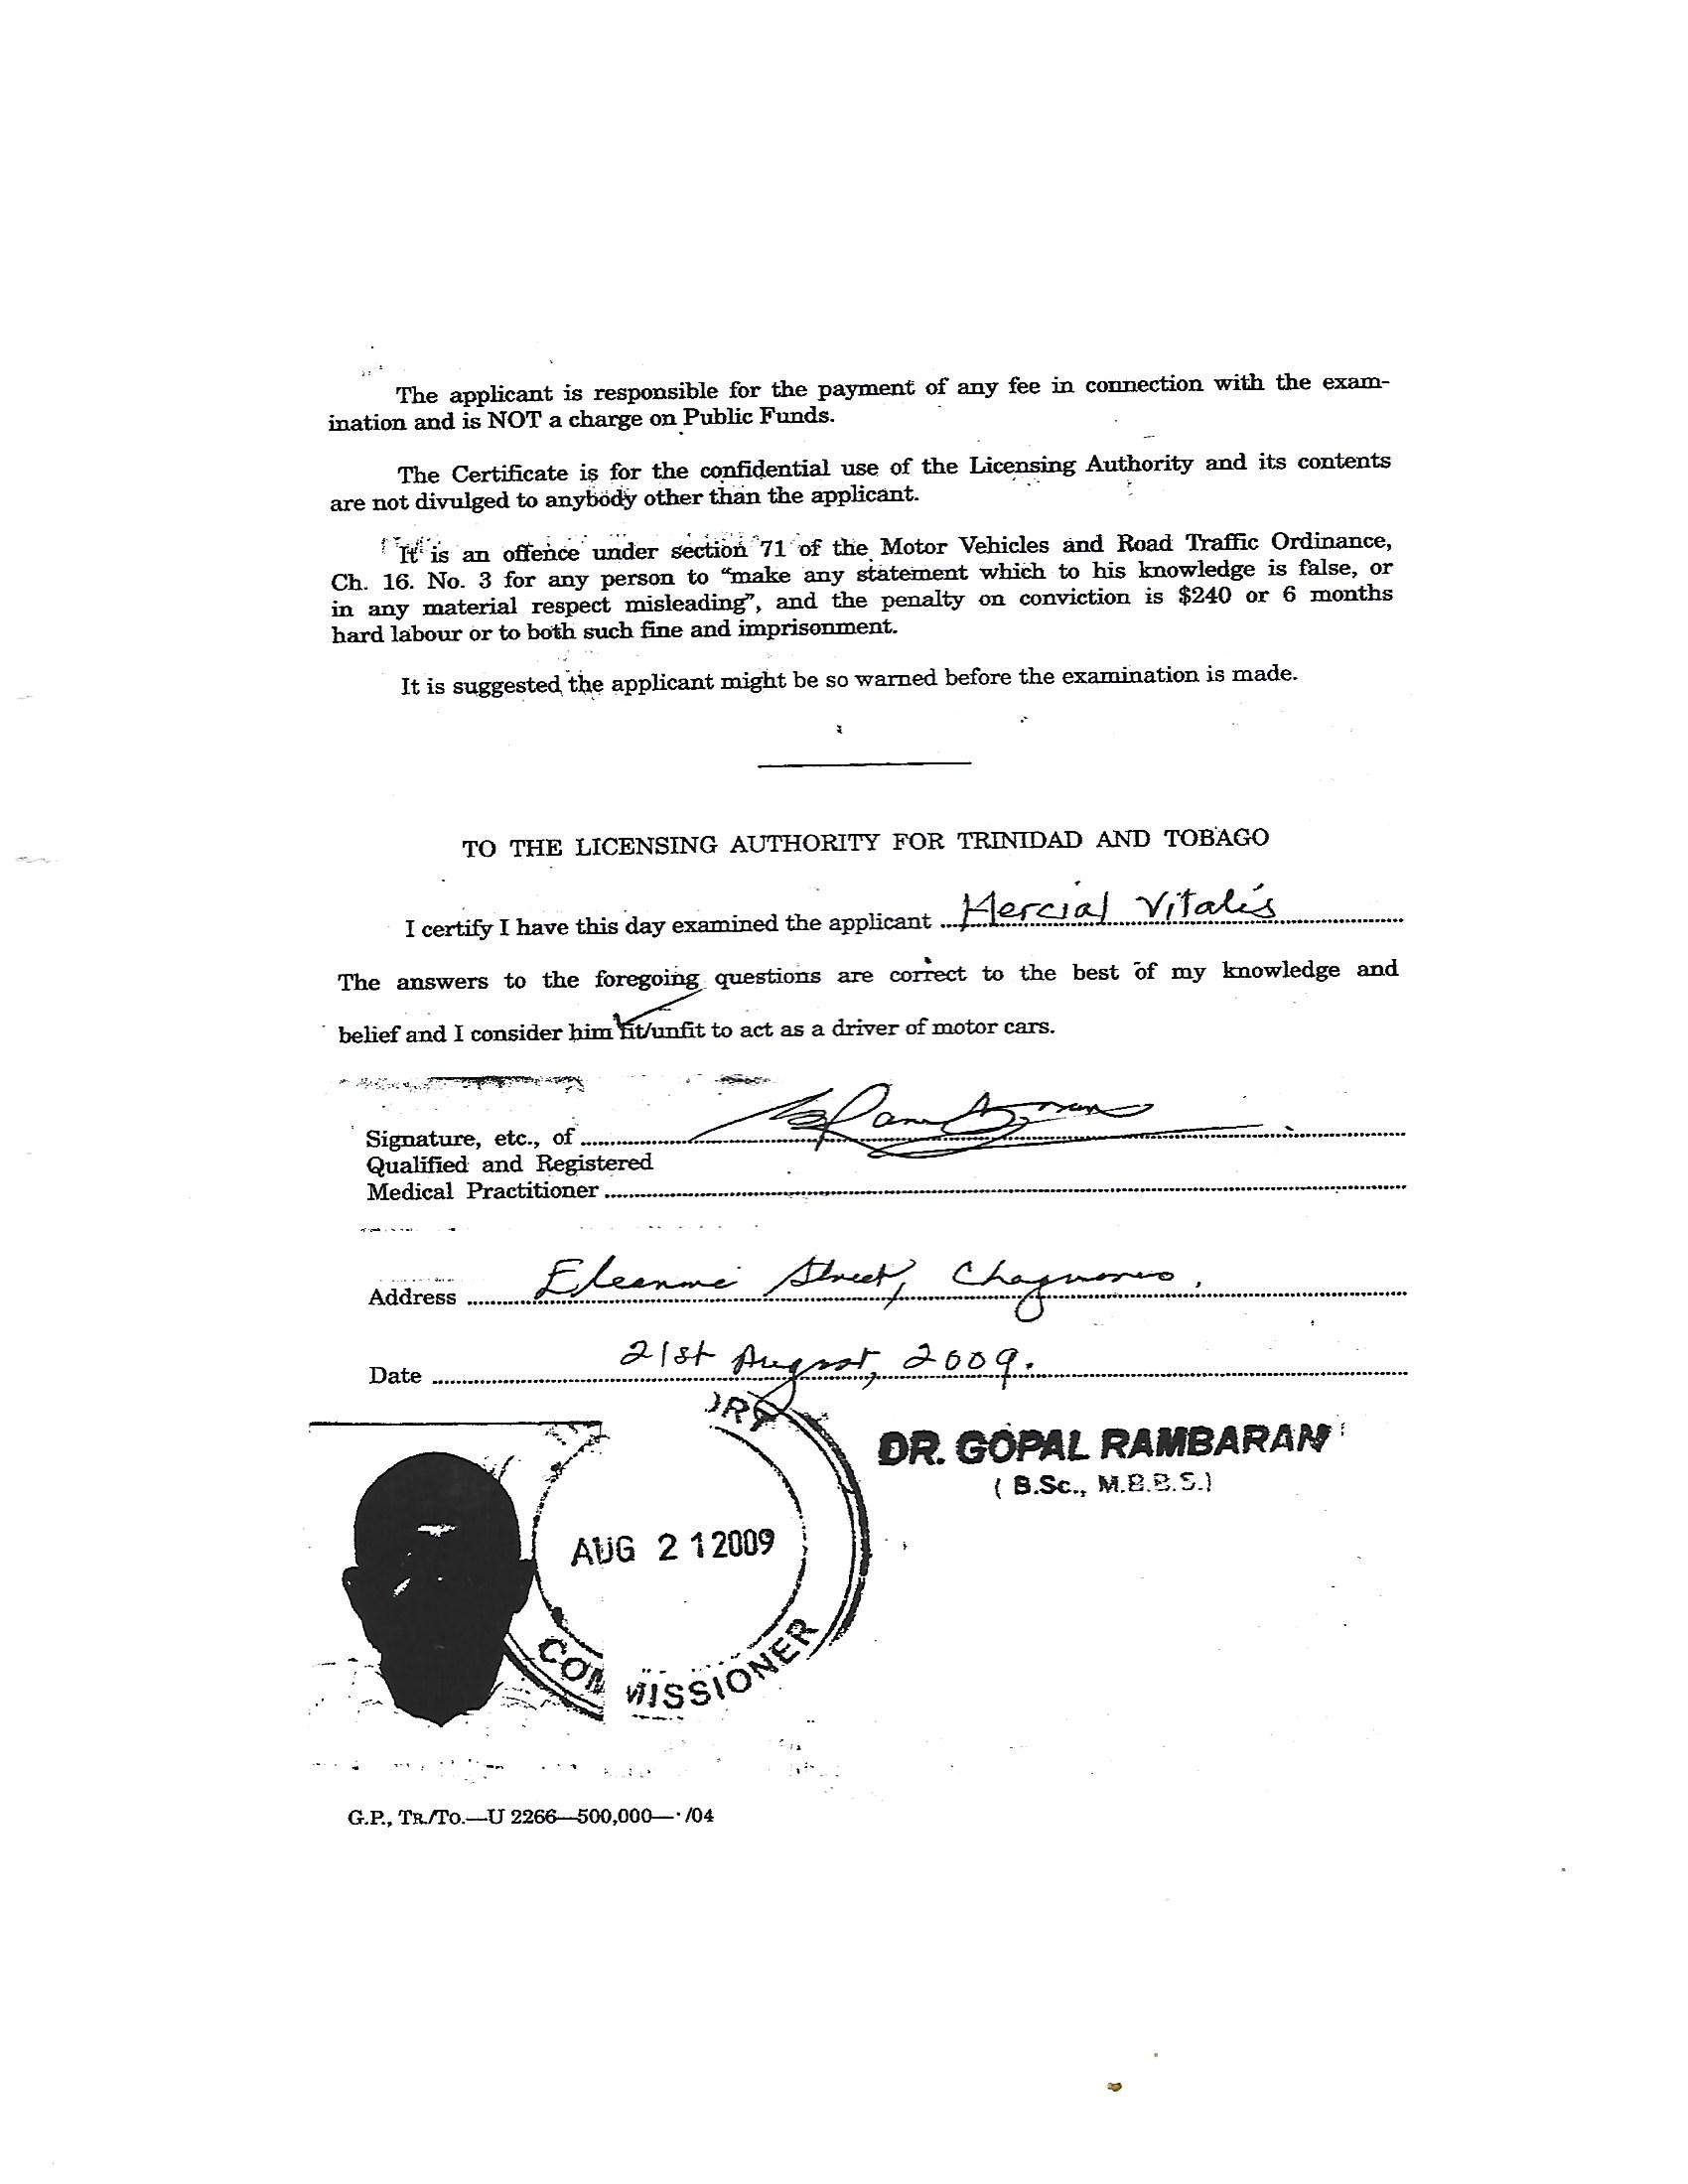 The applicant is responsible for the payment of any fee in connection with the exam-
ination and is NOT a charge on Public Funds.
The Certificate is for the confidential use of the Licensing Authority and its contents
are not divulged to anybody other than the applicant.
It is an offence under section 71 of the Motor Vehicles and Road Traffic Ordinance,
Ch. 16. No. 3 for any person to “make any statement which to his knowledge is false, or
in any material respect misleading”, and the penalty on conviction is $240 or 6 months
hard labour or to both such fine and imprisonment.
It is suggested the applicant might be so warned before the examination is made.
TO THE LICENSING AUTHORITY FOR TRINIDAD AND TOBAGO
I certify I have this day examined the applicant Mercial Vitalis
The answers to the foregoing questions are correct to the best of my knowledge and
belief and I consider him fit/unfit to act as a driver of motor cars.
Signature, etc., of
Qualified and Registered
Medical Practitioner
Address Street, Chaguanas.
Date 21st August, 2009.
DR. GOPAL RAMBARAN
( B.Sc., M.B.B.S.)
AUG 21 2009
COMMISSIONER
G.P., TR./TO.—U 2266—500,000— /04